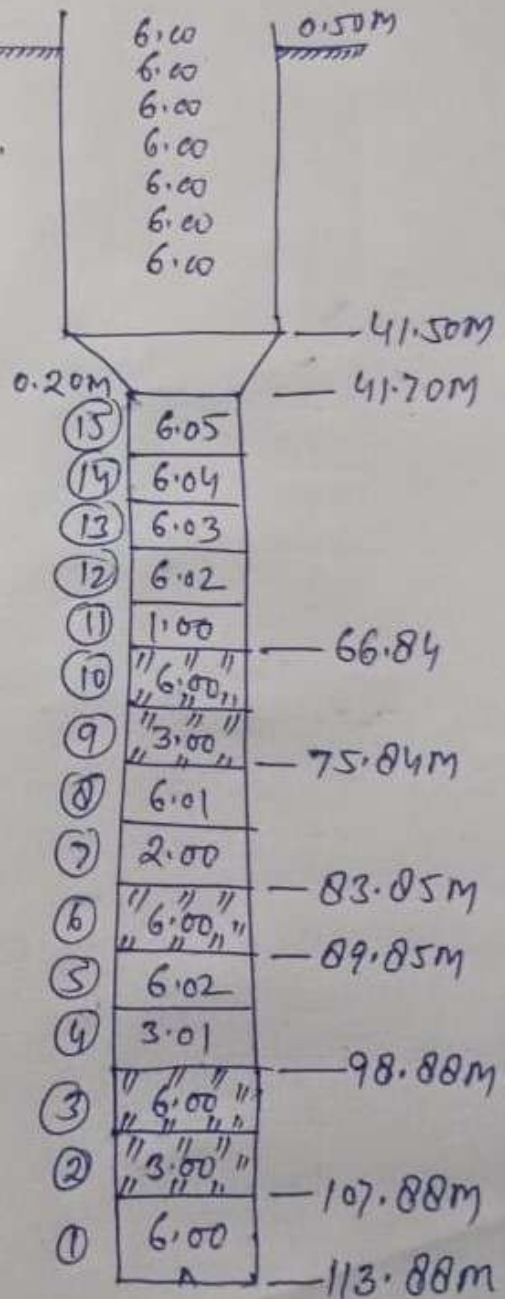 6.00 0.50m
6.00
6.00
6.00
6.00
6.00
6.00
41.50m
0.20m 41.70m
15 6.05
14 6.04
13 6.03
12 6.02
11 1.00
66.84
10 6.00
9 3.00
75.84m
8 6.01
7 2.00
83.85m
6 6.00
89.85m
5 6.02
4 3.01
98.88m
3 6.00
2 3.00
107.88m
1 6.00
113.88m